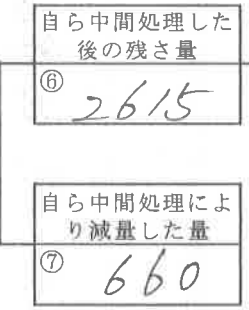 自ら中間処理した
後の残さ量
⑥
2615
自ら中間処理によ
り減量した量
⑦
660